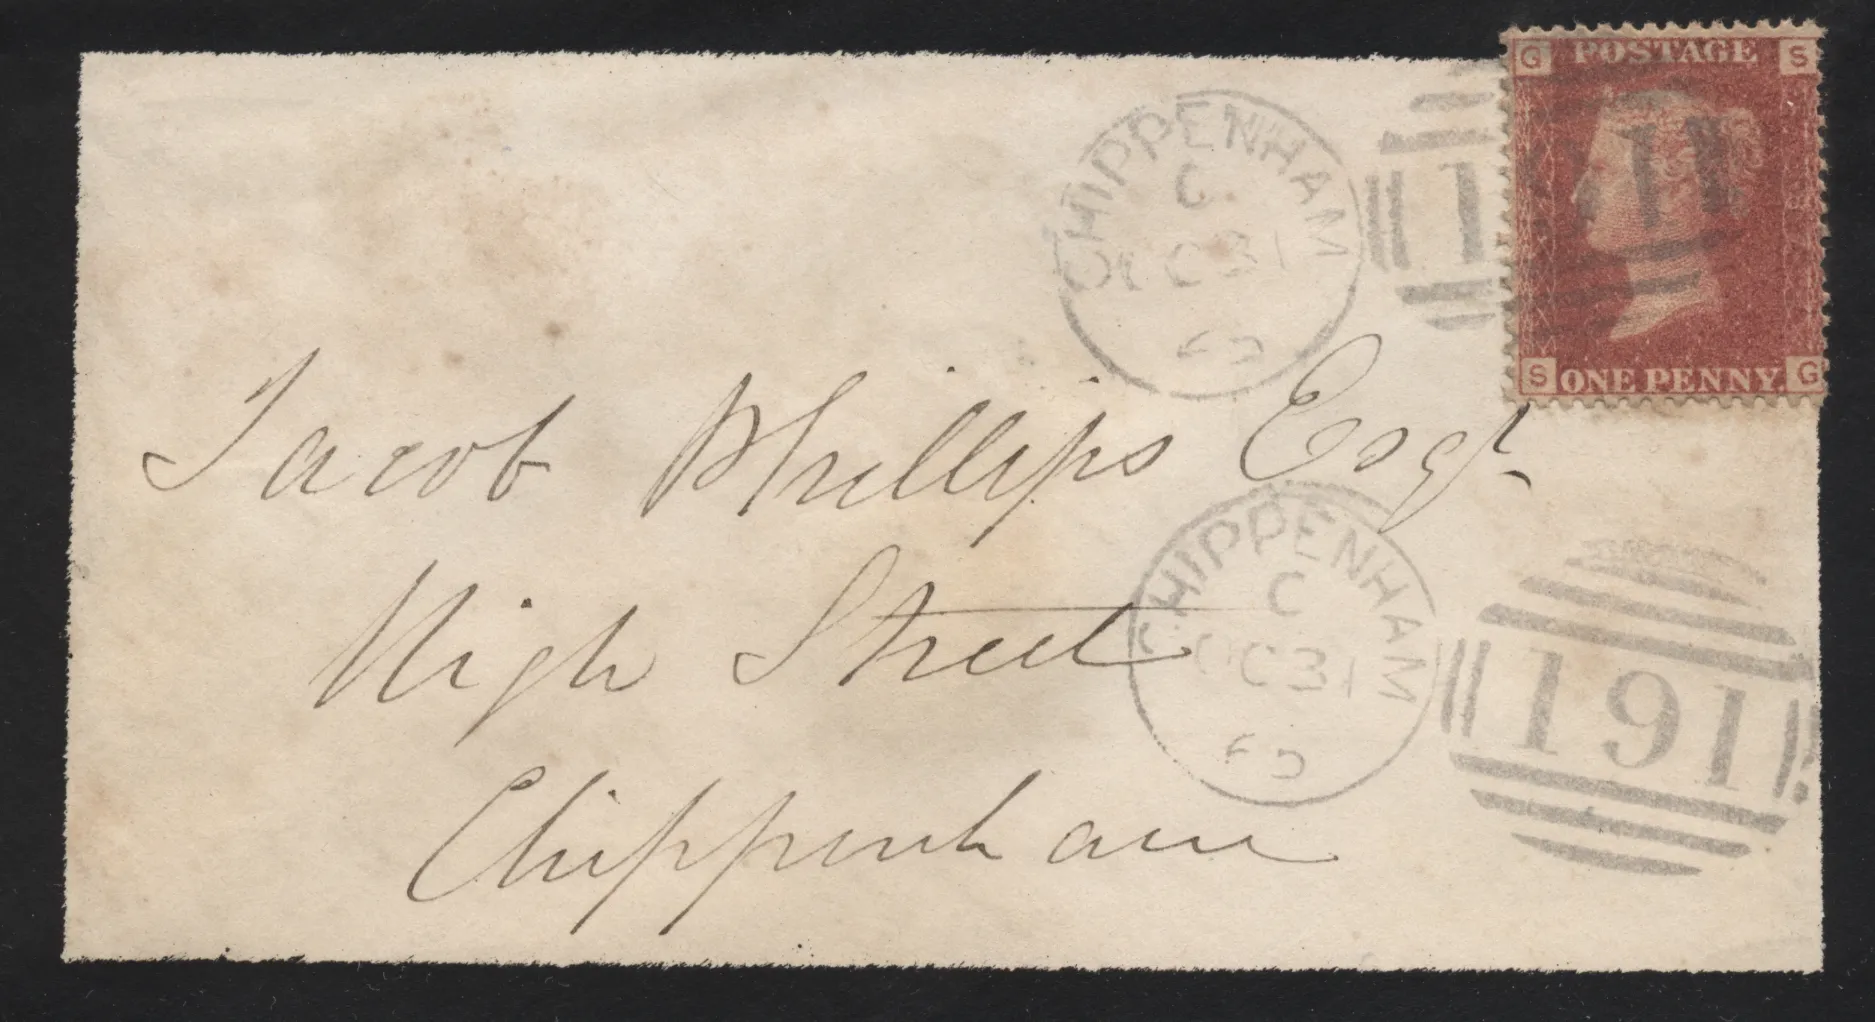 G POSTAGE S
CHIPPENHAM
C
OC 31
191
S ONE PENNY. G
Jacob Phillips Esqr
High Street
Chippenham
CHIPPENHAM
C
OC 31
191